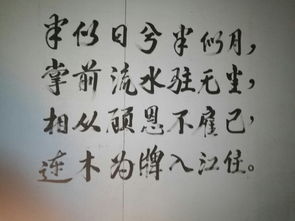 半似日兮半似月，
掌前流水驻无尘，
相从顾恩不雇己，
连木为牌入江住。